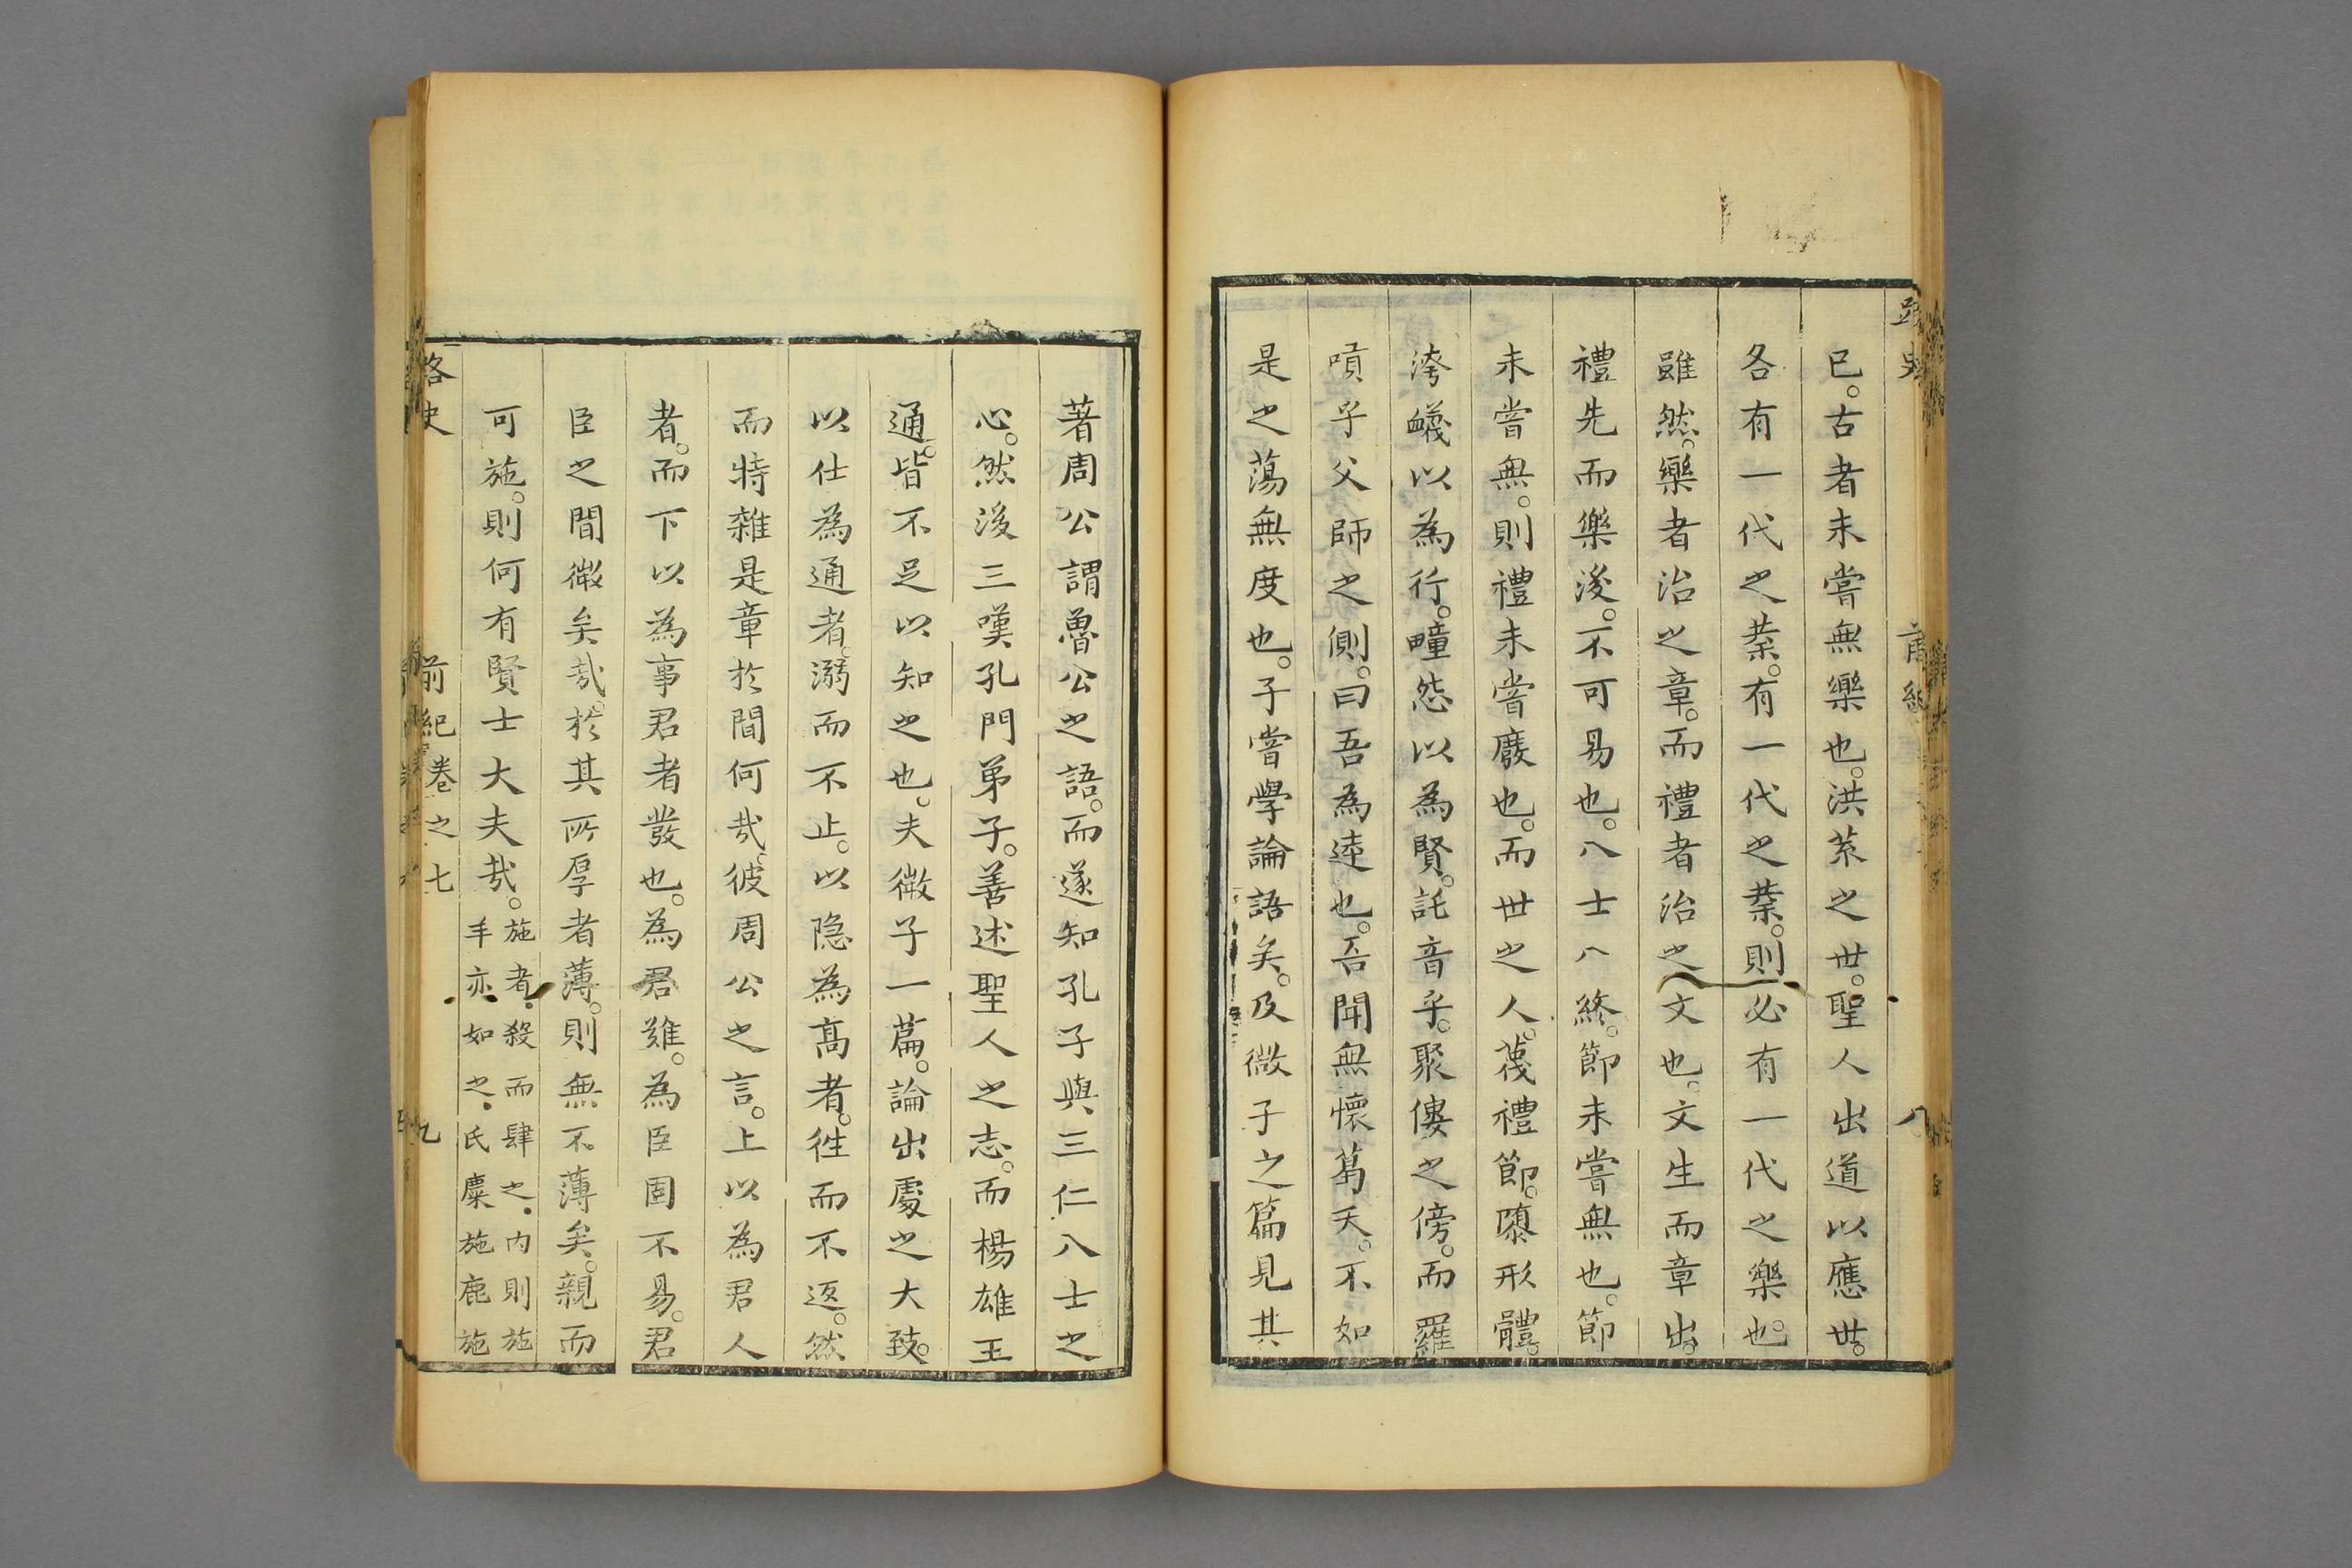 路史 前紀 八
已。古者未嘗無樂也。洪荒之世。聖人出道以應世。
各有一代之業。有一代之業。則必有一代之樂也。
雖然。樂者治之章。而禮者治之文也。文生而章出。
禮先而樂後。不可易也。八士八終。節未嘗無也。節
未嘗無。則禮未嘗廢也。而世之人。蔑禮節。隳形體。
以為行。以為賢。託音乎。聚僂之傍。而羅
嘖乎父師之側。曰吾為逵也。吾聞無懷葛天。不如
是之蕩無度也。子嘗學論語矣。及微子之篇見其
著周公謂魯公之語。而遂知孔子與三仁八士之
心。然後三嘆孔門弟子。善述聖人之志。而楊雄王
通。皆不足以知之也。夫微子一篇。論出處之大致。
以仕為通者。溺而不止。以隐為高者。往而不返。然
而特雜是章於間何哉。彼周公之言。上以為君人
者。而下以為事君者發也。為君難。為臣固不易。君
臣之間微矣哉。於其所厚者薄。則無不薄矣。親而
可施。則何有賢士大夫哉。施者。殺而肆之。内則施
羊亦如之。氏麋施鹿施
路史 前紀卷之七 九